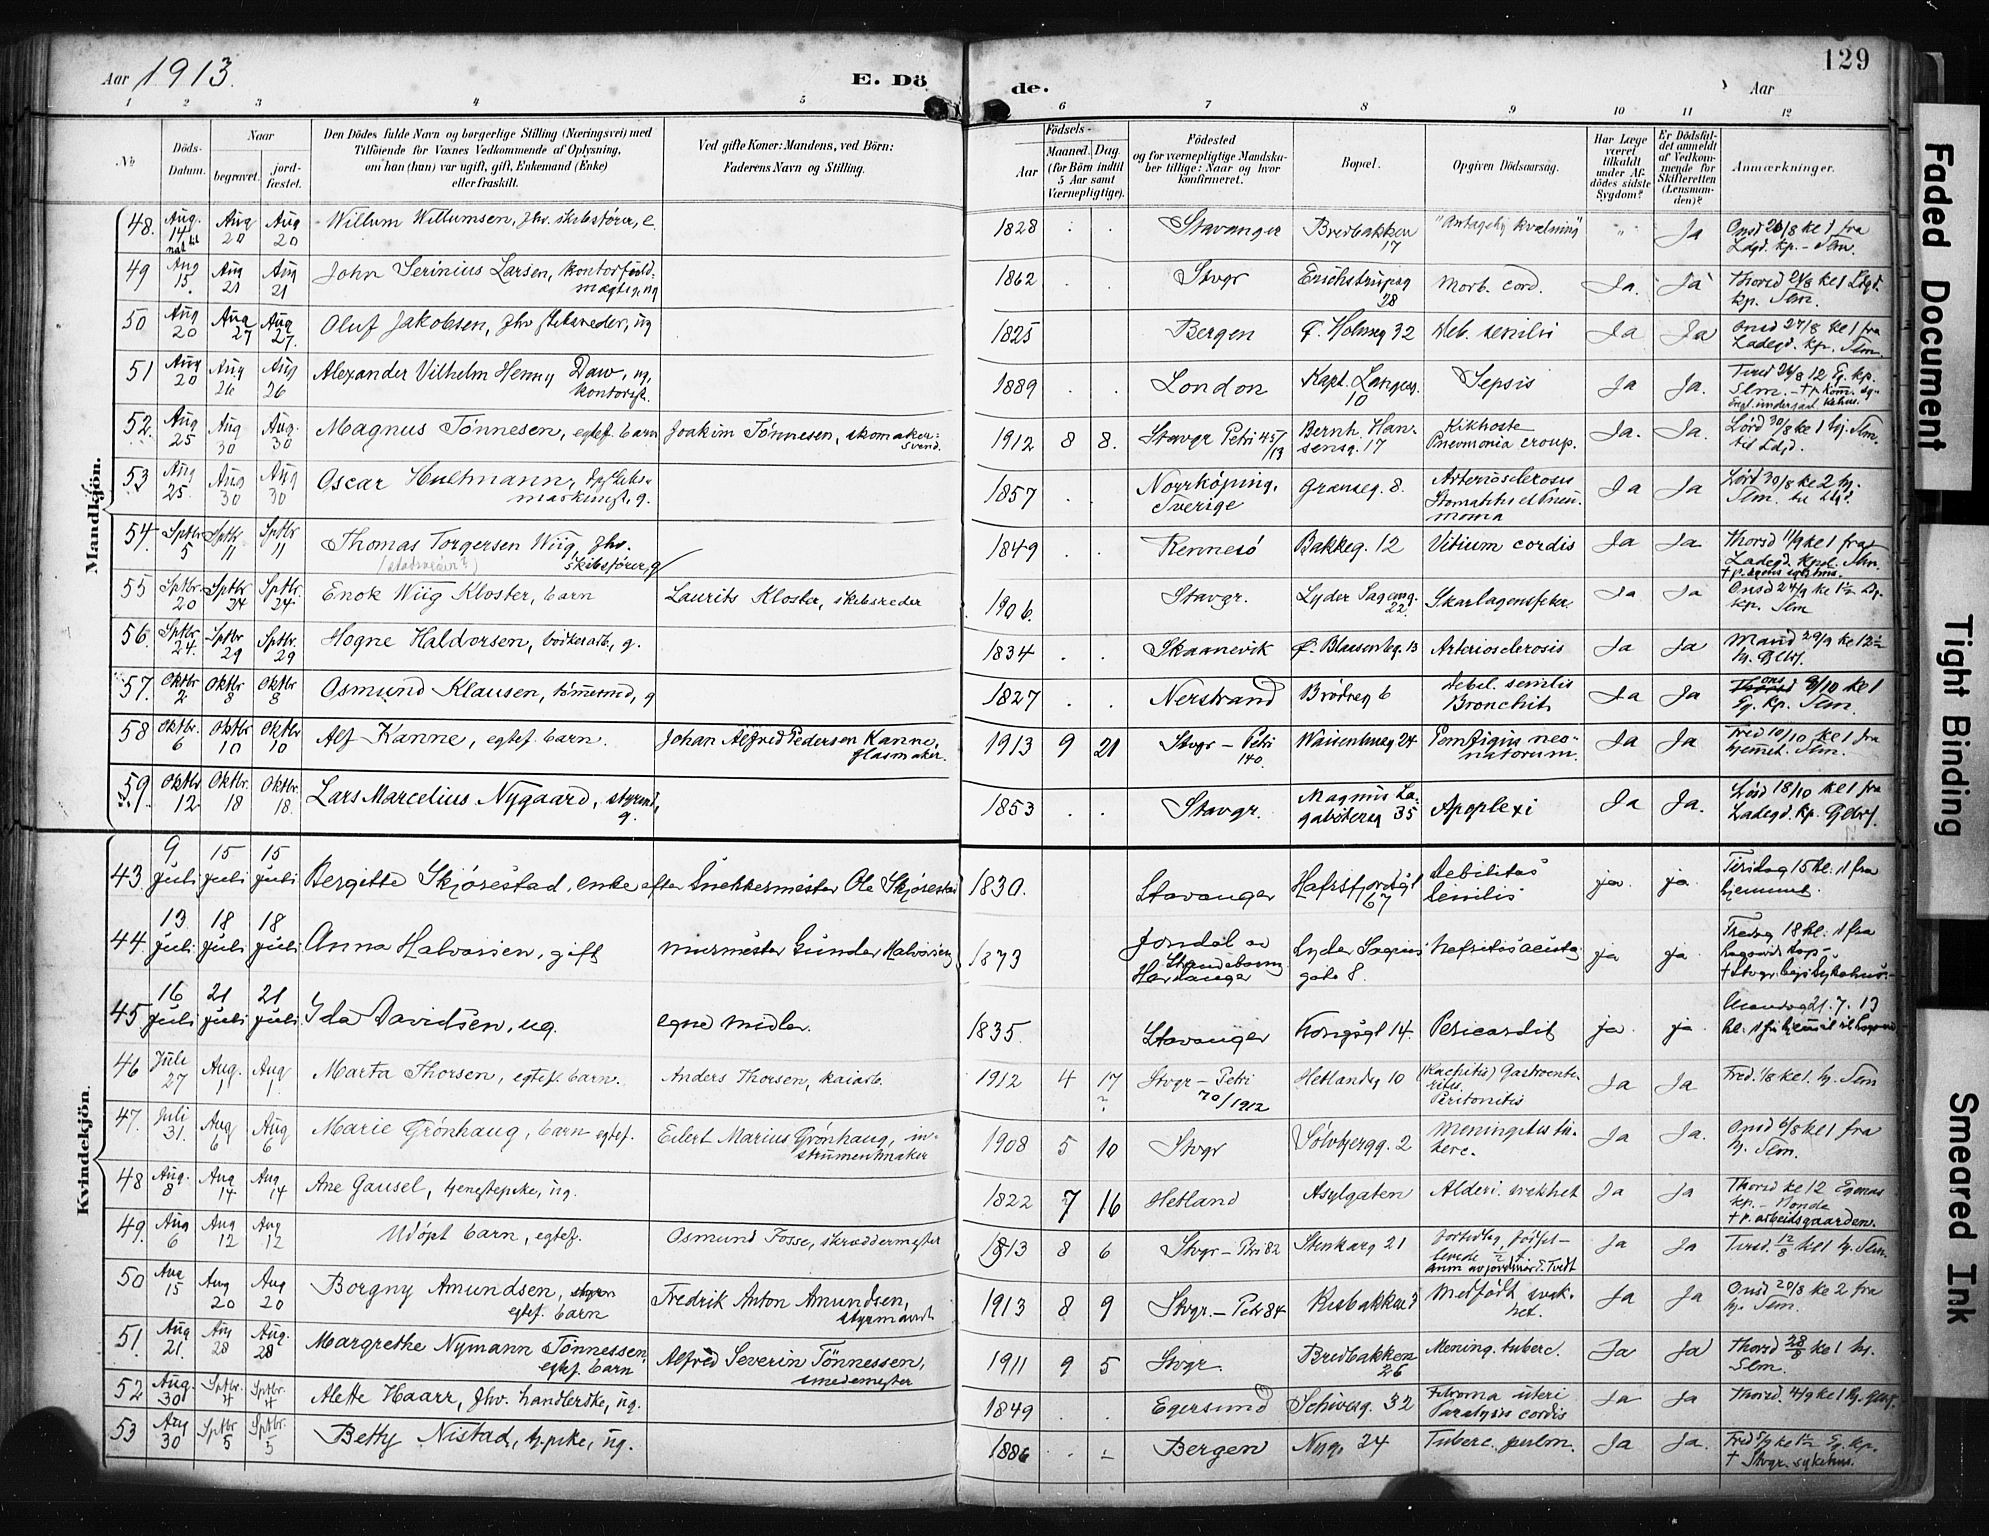 129
Aar 1913.
E. Dö
de.
Aar
1 2 3 4 5 6 7 8 9 10 11 12
№
Döds-
Datum.
Naar
begravet.
jord-
fæstet.
Den Dödes fulde Navn og borgerlige Stilling (Næringsvei) med
Tilföiende for Voxnes Vedkommende af Oplysning,
om han (hun) var ugift, gift, Enkemand (Enke)
eller fraskilt.
Ved gifte Koner: Mandens, ved Börn:
Faderens Navn og Stilling.
Födsels-
Aar
Maaned. Dag.
(for Börn indtil
5 Aar samt
Værnepligtige).
Födested
og for værnepligtige Mandska-
ber tillige: Naar og hvor
konfirmeret.
Bopæl.
Opgiven Dödsaarsag.
Har Læge
været
tilkaldt
under Af-
dödes sidste
Sygdom?
Er Dödsfal-
det anmeldt
af Vedkom-
mende for
Skifteretten
(Lensman-
den)?
Anmærkninger.
Mandkjön.
48. Aug. 14 Aug 20 Aug 20 Willum Willumsen, fhv. skibsfører, e. 1828 Stavanger Bredbakken 17 "Antagelig kvælning" Ja Onsd 20/8 kl 1 fra
Ldgd. kp. - Slm.
49 Aug 15. Aug 21 Aug 21 John Serinius Larsen, kontorfuld-
mægtig, ug 1862 Stvgr 28 Morb. cord. Ja. Ja Thorsd 21/8 kl 1 Ldgd.
kp. Slm.
50 Aug 20 Aug 27 Aug 27. Oluf Jakobsen, fhv skibsreder, ug 1825 Bergen Ø. Holmeg 32 Deb. senilis Ja Ja Onsd 27/8 kl 1 fra
Ladegd. kp. Slm.
51 Aug 20 Aug 26 Aug 26 Alexander Vilhelm Henny Daw, ug,
kontorist. 1889 London Kapt. Langeg. 10 Sepsis Ja Ja. Tirsd 26/8 12 Eg. kp.
52. Aug 25 Aug 30 Aug. 30 Magnus Tönnesen, egtef. barn Joakim Tönnesen, skomaker-
svend. 1912 8 8. Stavgr Petri 45/13 Bernh. Han-
sensg. 17 Kikhoste
Pneumonia croup. Ja. Ja. Lörd 30/8 kl 1 hj. Slm.
til Ldgd.
53 Aug 25. Aug 30 Aug 30 Oscar Hultmann,
maskinist, g. 1857 Norrköping,
Sverige Granseg. 8. Arteriosclerosis Ja Ja Lörd 30/8 kl 2 hj.
54. Sptbr 5 Sptbr 11 Sptbr 11 Thomas Torgersen Wiig, fhv.
skibsförer, g 1849 Rennesö Bakkeg. 12 Vitium cordis Ja Ja Thorsd 11/9 kl 1 fra
Ladegd. kpel. Slm.
55 Sptbr. 20 Sptbr 24 Sptbr. 24 Enok Wiig Kloster, barn Laurits Kloster, skibsreder 1906. Stavgr. Lyder Sagensg. 22. Skarlagensfeber Ja Ja Onsd 24/9 kl 1½ Ldg.
kp. Slm
56. Sptbr 24. Sptbr 29 Sptbr 29 Hogne Haldorsen, g. 1834 Skaanevik Ø. Blaasenbg. 13 Arteriosclerosis Ja Ja Mand 29/9 kl 12½
57. Oktbr 2 Oktbr 8 Oktbr 8 Osmund Klausen, tömmermd, g 1827 Nerstrand Brödreg 6 Debil. senilis
Bronchit Ja Ja 8/10 kl 1
Eg. kp. Slm.
58 Oktbr. 6 Oktbr 10 Oktbr 10 Alf Kanne, egtef. barn. Johan Alfred Pedersen Kanne,
Glasmaker. 1913 9 21 Stvgr - Petri
140. Waisenhuseg 24 Pemfigus neo-
natorum. Ja Ja Fred 10/10 kl 1 fra
hjemmet. Slm.
59 Oktbr 12 Oktbr. 18 Oktbr. 18. Lars Marcelius Nygaard, styrmd,
g. 1853 Stavgr. Magnus La-
gabøtersg 35 Apoplexi Ja Ja. Lörd 18/10 kl 1 fra
Ladegd. kp.
Kvindekjön.
43. 9 Juli 15 Juli 15 Juli Bergitte Skjørestad, enke efter Snekkermester Ole Skjørestad 1830. Stavanger Hafrsfjordgt 67 Debilitas
senilis ja. ja. Tirsdag 15 kl. 1 fra
hjemmet.
44. 13 Juli 18 Juli 18 Juli Anna Halvorsen, gift murmester Gunder Halvorsen 1873 Jondal av
Strandebarm
Hardanger Lyder Sagens
gate 8. Nefritis acuta ja ja. Fredag 18 kl. 1 fra
45. 16 Juli 21 Juli 21 Juli Ida Davidsen, ug. egne midler. 1835. Stavanger Kongsgt 14. Pericardit ja. ja. Mandag 21. 7. 13
46 Juli 27 Aug. 1 Aug 1. Marta Thorsen, egtef. barn. Anders Thorsen, kaiarb. 1912 4 17 Stvgr - Petri
70/1912 Hetlandsg 10 (Rachitis) Gastroente-
ritis.
Peritonitis Ja Ja Fred. 1/8 kl 1. hj. Slm
47. Juli 31. Aug 6 Aug 6 Marie Grönhaug, barn egtef. Eilert Marius Grönhaug, in-
strumentmaker 1908 5 10 Stvgr Sölvbergg. 2 Meningitis tu-
berc. Ja Ja. Onsd 6/8 kl 1 fra
hj. Slm.
48 Aug. 8 Aug 14 Aug. 14 Ane Gausel, tjenestepike, ug. 1822 7 16 Hetland Asylgaten Alderd. svekhet Ja Ja Thorsd kl 12 Egenæs
kp.
+ p. arbeidsgaarden.
49. Aug 6 Aug 12 Aug 12 Udöpt barn, egtef. Osmund Fosse, skræddermester 1913 8 6 Stvgr - Petri 82 Stenkarg 21 Ja Ja Tirsd. 12/8 kl 1 hj. Slm.
50 Aug 15 Aug 20 Aug 20 Borgny Amundsen,
egtef. barn Fredrik Anton Amundsen,
styrmand 1913 8 9 Stvgr. - Petri 84 Medfödt svak-
het. Ja Ja Onsd 20/8 kl 2 fra
hj. Slm.
51. Aug 21. Aug 28 Aug. 28 Margrethe Nymann Tönnessen
egtef. barn Alfred Severin Tönnessen,
smedemester 1911 9 5 Stvgr. Bredbakken
26 Mening. tuberc. Ja Ja Thorsd 28/8 kl 1 hj.
Slm.
52 Aug. 30 Sptbr. 4 Sptbr. 4 Alette Haarr, fhv. handlerske, ug. 1849 Egersund Schiveg. 32 Fibroma uteri
Paralysis cordis Ja Ja Thorsd. 4/9 kl 1 hj.
53 Aug 30 Sptbr 5 Sptbr. 5 Betty Nistad, ug. 1886 Bergen Nyg. 24 Tuberc. pulm. Ja Ja. Fred 5/9 kl 1½ Eg. kp.
+ Stvgr. sykehus.
Faded Document
Tight Binding
Smeared Ink